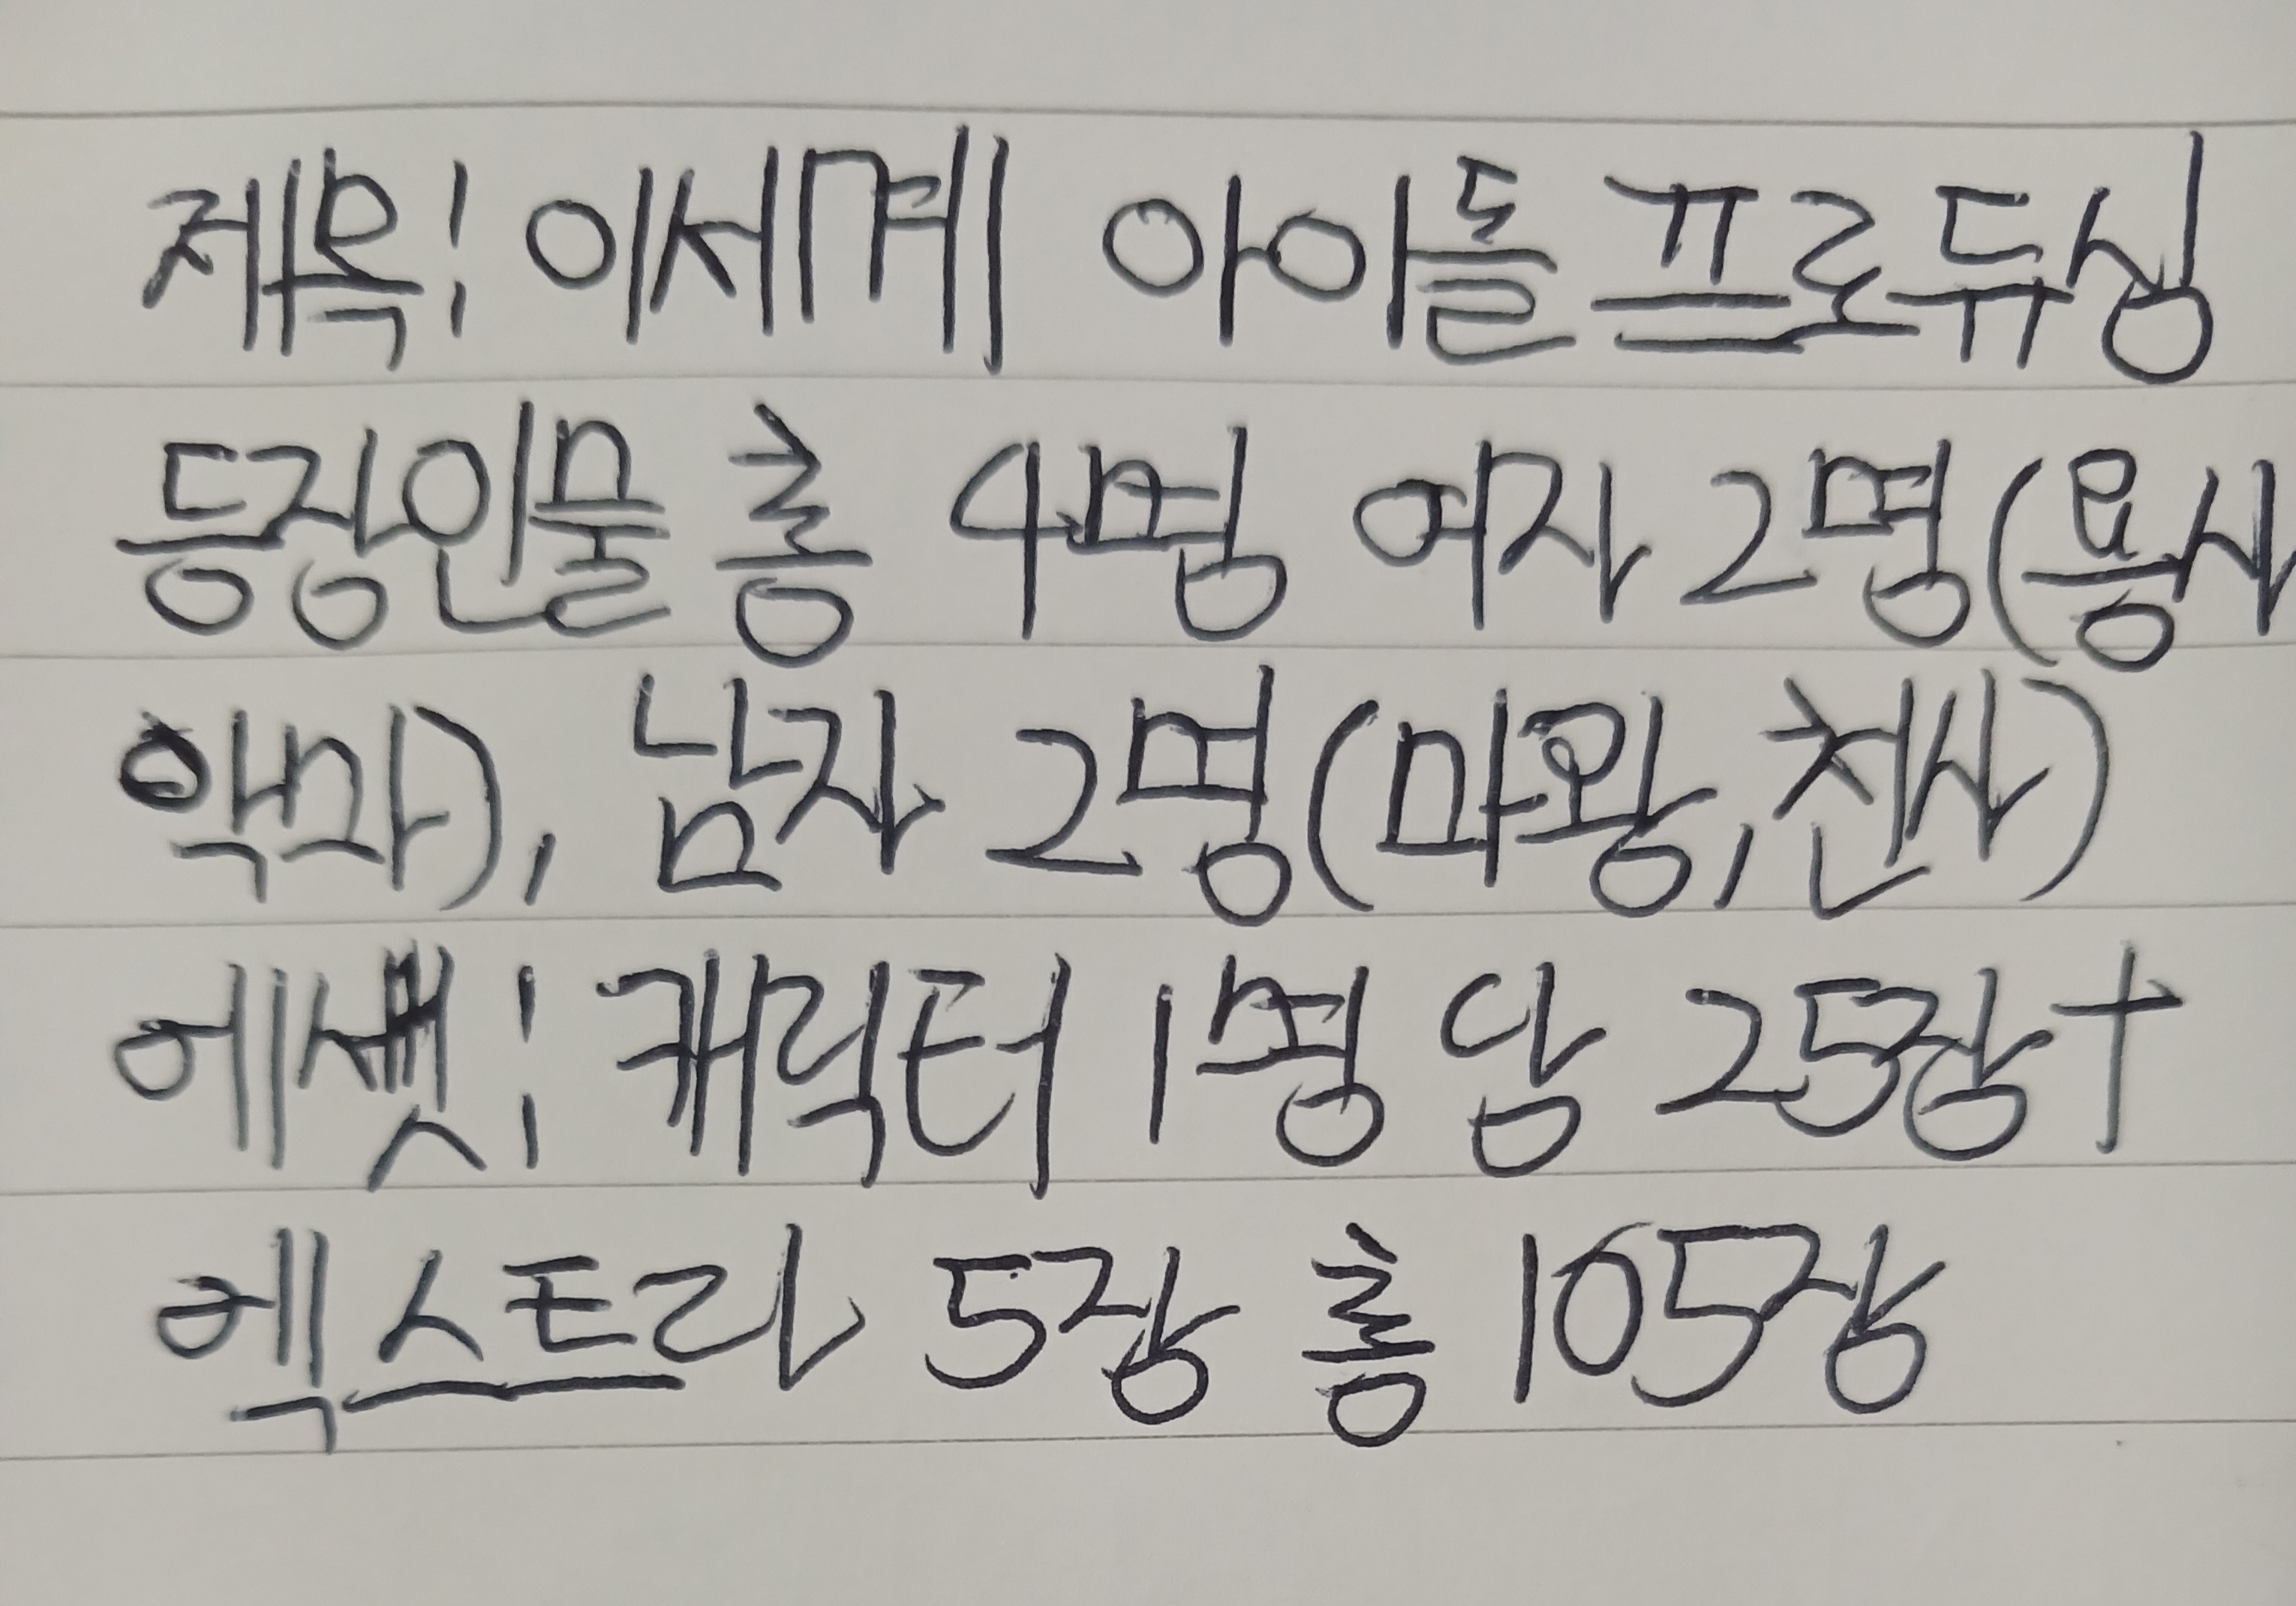 제목: 이세계 아이돌 프로듀싱
등장인물 총 4명 여자 2명(용사
악마), 남자 2명(마왕, 천사)
에셋: 캐릭터 1명 당 25장+
엑스트라 5장 총 105장